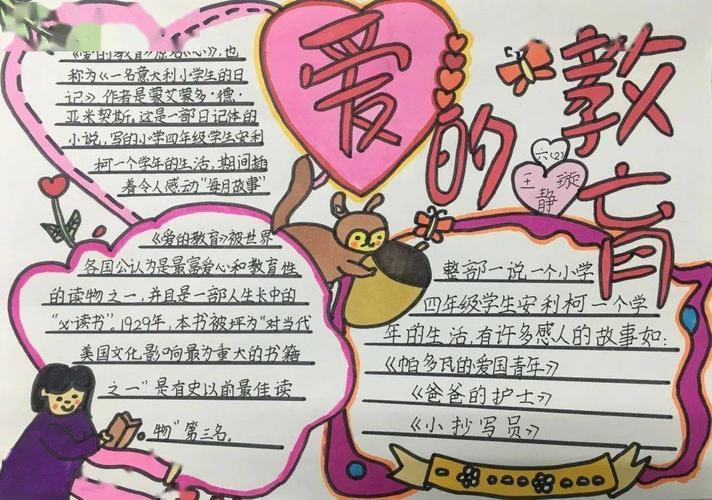 爱的教育
六(2)
王静璇
《爱的教育》原名《心》，也
称为《一名意大利小学生的日
记》，作者是蒙艾蒙多·德·
亚米契斯，这是一部日记体的
小说，写的小学四年级学生安利
柯一个学年的生活，期间插
着令人感动“每月故事”
《爱的教育》被世界
各国公认为是最富爱心和教育性
的读物之一，并且是一部人生长中的
“必读书”。1929年，本书被坪为“对当代
美国文化影响最为重大的书籍
之一”是有史以前最佳读
物”第三名。
整部一说一个小学
四年级学生安利柯一个学
年的生活，有许多感人的故事如：
《帕多瓦的爱国青年》
《爸爸的护士》
《小抄写员》